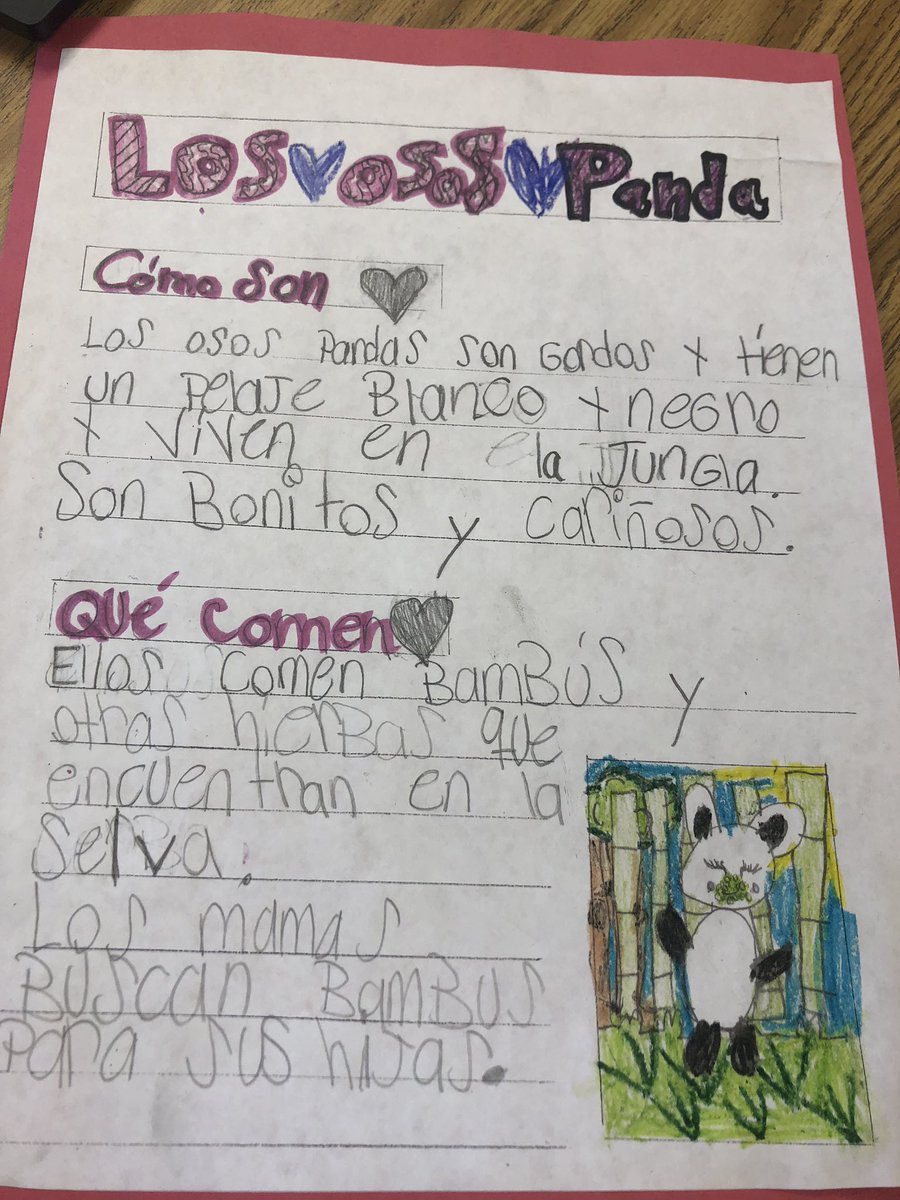 Los osos Panda
Cómo son
Los osos Pandas son Gordos y tienen
un Pelaje Blanco y negro
y viven en la Jungla.
Son Bonitos y cariñosos.
Qué comen
Ellos comen BamBús y
otras hierBas que
encuentran en la
Selva.
Los mamas
Buscan BamBus
Para sus hijas.